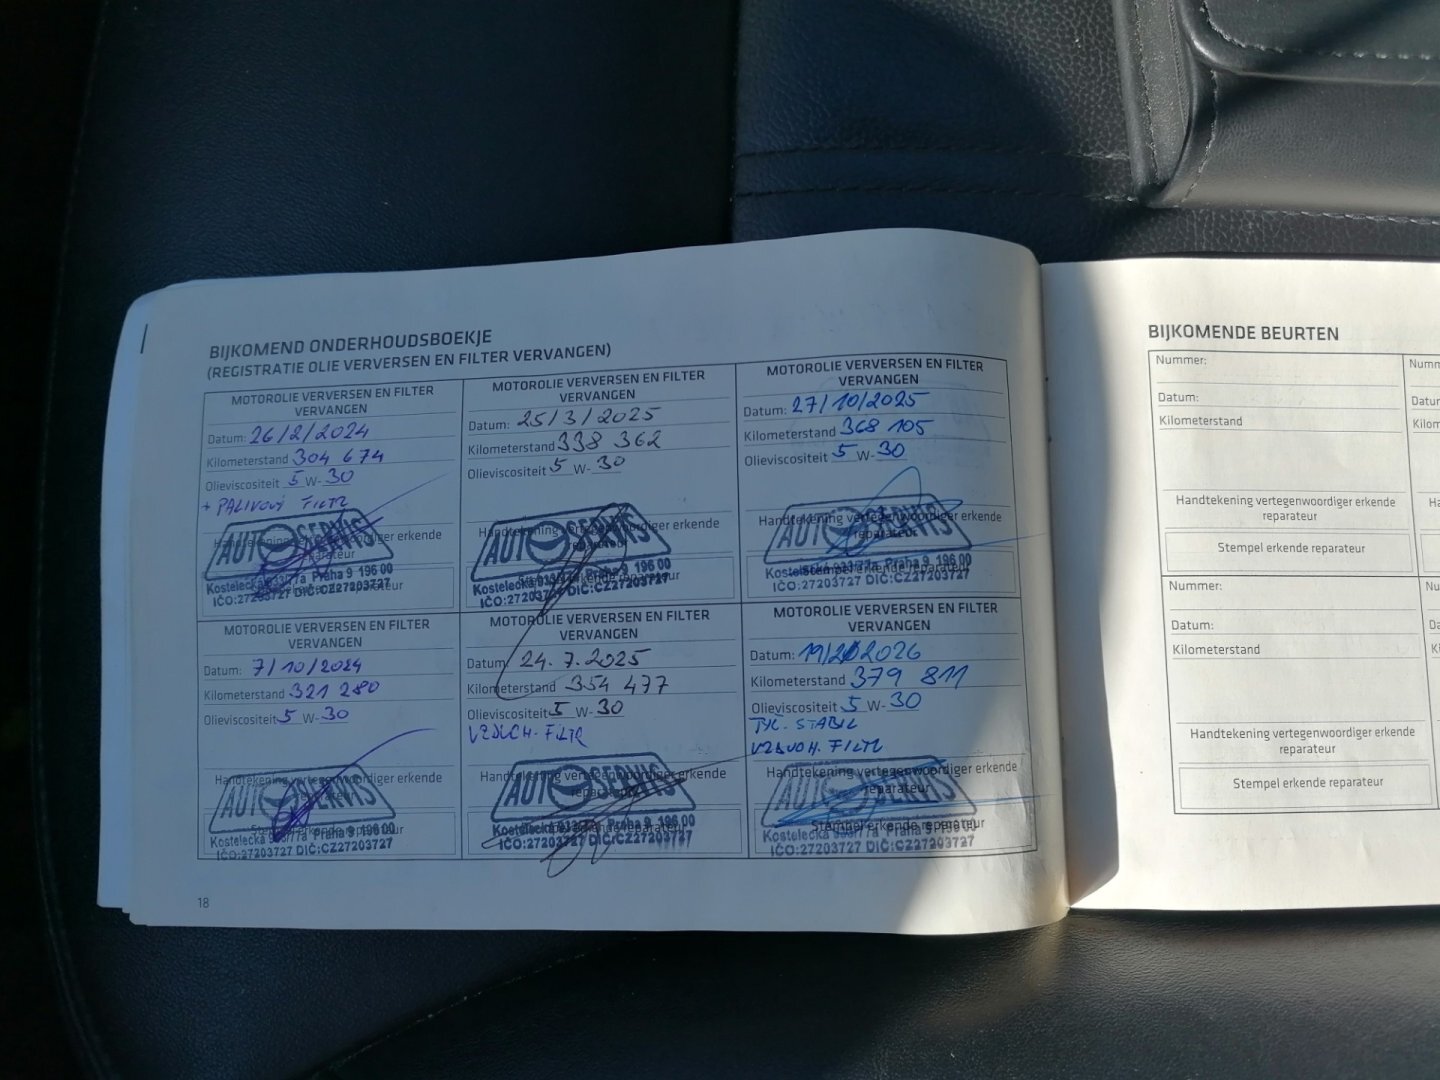 BIJKOMEND ONDERHOUDSBOEKJE
(REGISTRATIE OLIE VERVERSEN EN FILTER VERVANGEN)
MOTOROLIE VERVERSEN EN FILTER
VERVANGEN
Datum: 26/2/2024
Kilometerstand 304 674
Olieviscositeit 5 W- 30
+ PALIVOVÝ FILTR
AUTOSERVIS
Handtekening vertegenwoordiger erkende
reparateur
Kostelecká 933/77a Praha 9 196 00
IČO:27203727 DIČ:CZ27203727
MOTOROLIE VERVERSEN EN FILTER
VERVANGEN
Datum: 25/3/2025
Kilometerstand 338 362
Olieviscositeit 5 W- 30
AUTOSERVIS
Handtekening vertegenwoordiger erkende
reparateur
Kostelecká 933/77a Praha 9 196 00
IČO:27203727 DIČ:CZ27203727
MOTOROLIE VERVERSEN EN FILTER
VERVANGEN
Datum: 27/10/2025
Kilometerstand 368 105
Olieviscositeit 5 W- 30
AUTOSERVIS
Handtekening vertegenwoordiger erkende
reparateur
Kostelecká 933/77a Praha 9 196 00
Stempel erkende reparateur
IČO:27203727 DIČ:CZ27203727
MOTOROLIE VERVERSEN EN FILTER
VERVANGEN
Datum: 7/10/2024
Kilometerstand 321 280
Olieviscositeit 5 W- 30
AUTOSERVIS
Handtekening vertegenwoordiger erkende
reparateur
Stempel erkende reparateur
Kostelecká 933/77a Praha 9 196 00
IČO:27203727 DIČ:CZ27203727
MOTOROLIE VERVERSEN EN FILTER
VERVANGEN
Datum 24.7.2025
Kilometerstand 354 477
Olieviscositeit 5 W- 30
VZDUCH. FILTR
AUTOSERVIS
Handtekening vertegenwoordiger erkende
reparateur
Kostelecká 933/77a Praha 9 196 00
IČO:27203727 DIČ:CZ27203727
MOTOROLIE VERVERSEN EN FILTER
VERVANGEN
Datum: 2026
Kilometerstand 379 811
Olieviscositeit 5 W- 30
TYČ. STABIL
VZDUCH. FILTR
AUTOSERVIS
Handtekening vertegenwoordiger erkende
reparateur
Stempel erkende reparateur
Kostelecká 933/77a Praha 9 196 00
IČO:27203727 DIČ:CZ27203727
18
BIJKOMENDE BEURTEN
Nummer:
Datum:
Kilometerstand
Handtekening vertegenwoordiger erkende
reparateur
Stempel erkende reparateur
Nummer:
Datum:
Kilometerstand
Handtekening vertegenwoordiger erkende
reparateur
Stempel erkende reparateur